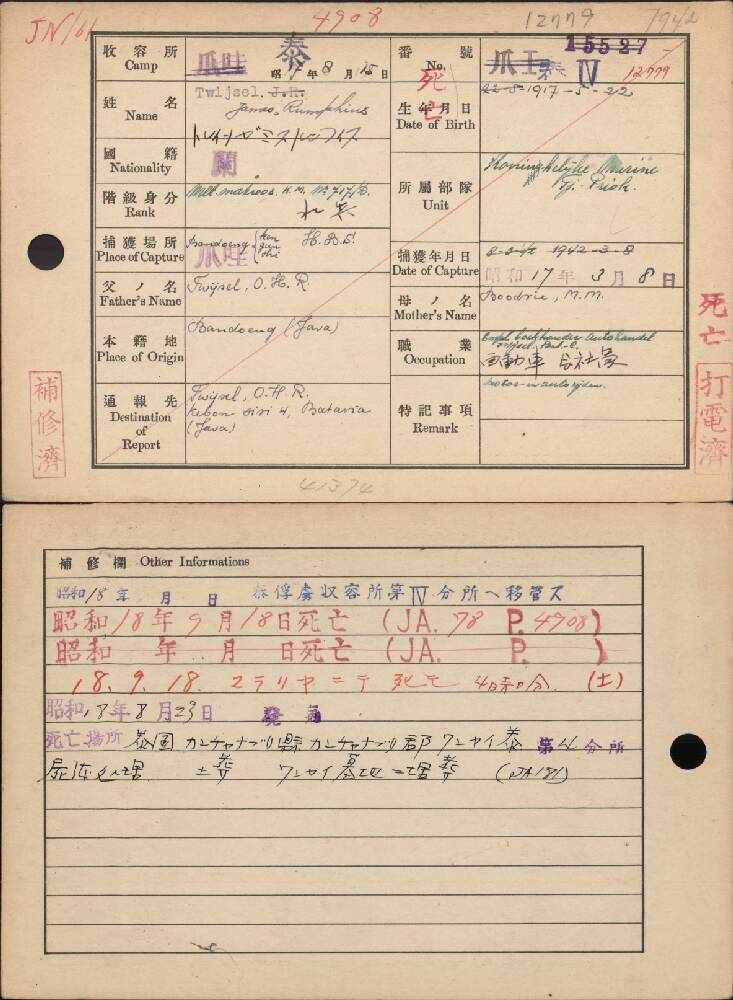 JN/61 4908 12779 7942
收容所 Camp 爪哇 泰 昭17年8月15日
番號 No. 爪王 15527 IV 12779
死亡
姓名 Name Twijsel. J.R.
James, Rumphius
生年月日 Date of Birth 22-5-1917-5-22
國籍 Nationality 蘭
階級身分 Rank Milt. matroos. H.M. No 717/D.
所屬部隊 Unit Koninghelijke Marine
Tj. Priok.
捕獲場所 Place of Capture Bandoeng H.B.S.
爪哇
捕獲年月日 Date of Capture 8-3-42 1942-3-8
昭和17年3月8日
父ノ名 Father's Name Twijsel, O.H.R.
母ノ名 Mother's Name Boodrie, M.M.
本籍地 Place of Origin Bandoeng (Java)
職業 Occupation
自動車会社員
通報先 Destination of Report Twijsel, O.H.R.
Kebon sisi 4, Batavia
(Java)
特記事項 Remark motor- en autorijden.
補修濟
死亡
打電濟
41374
補修欄 Other Informations
昭和18年 月 日 泰俘虜収容所第IV分所ヘ移管ス
昭和18年9月18日死亡 (JA. 78 P. 4908)
昭和 年 月 日死亡 (JA. P. )
18.9.18. (土)
昭和18年8月23日
死亡場所 泰国カンチャナブリ縣カンチャナブリ郡ワンヤイ泰第4分所
屍体処理 土葬 ワンヤイ墓地ニ埋葬 (JA181)